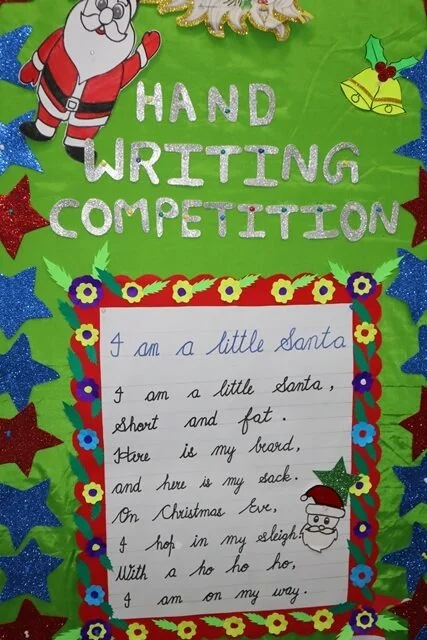 HAND
WRITING
COMPETITION
I am a little Santa
I am a little Santa,
Short and fat.
Here is my beard,
and here is my sack.
On Christmas Eve,
I hop in my sleigh.
With a ho ho ho,
I am on my way.